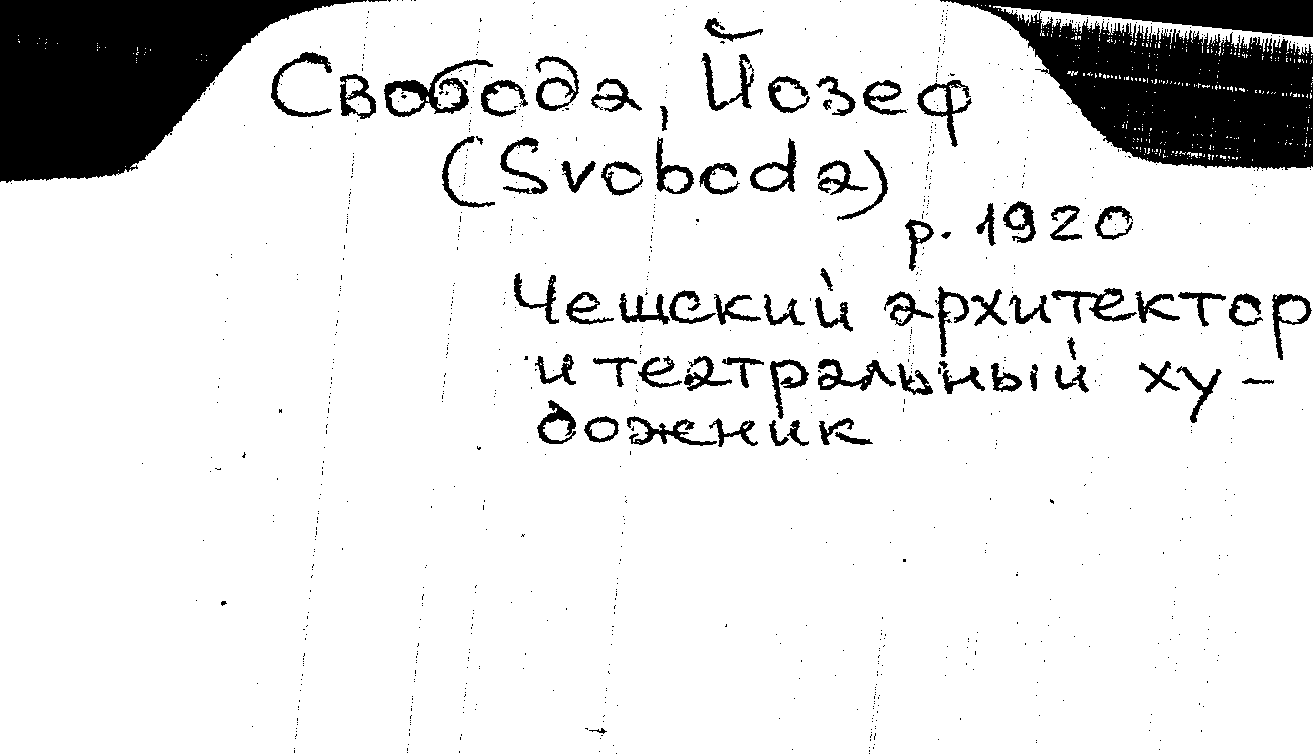 Свобода, Йозеф
(Svoboda)
р. 1920
Чешский архитектор
и театральный ху-
дожник